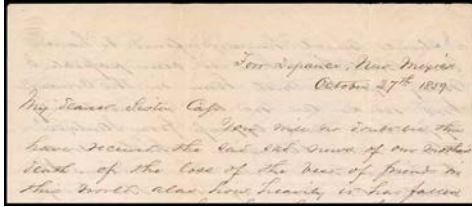 Fort Defiance, New Mexico
October 27th 1859
My Dearest Sister Cap.
You will no doubt ere this
have received the sad sad news of our mothers
death. of the loss of the best of friend in
this world alas how heavily it has fallen